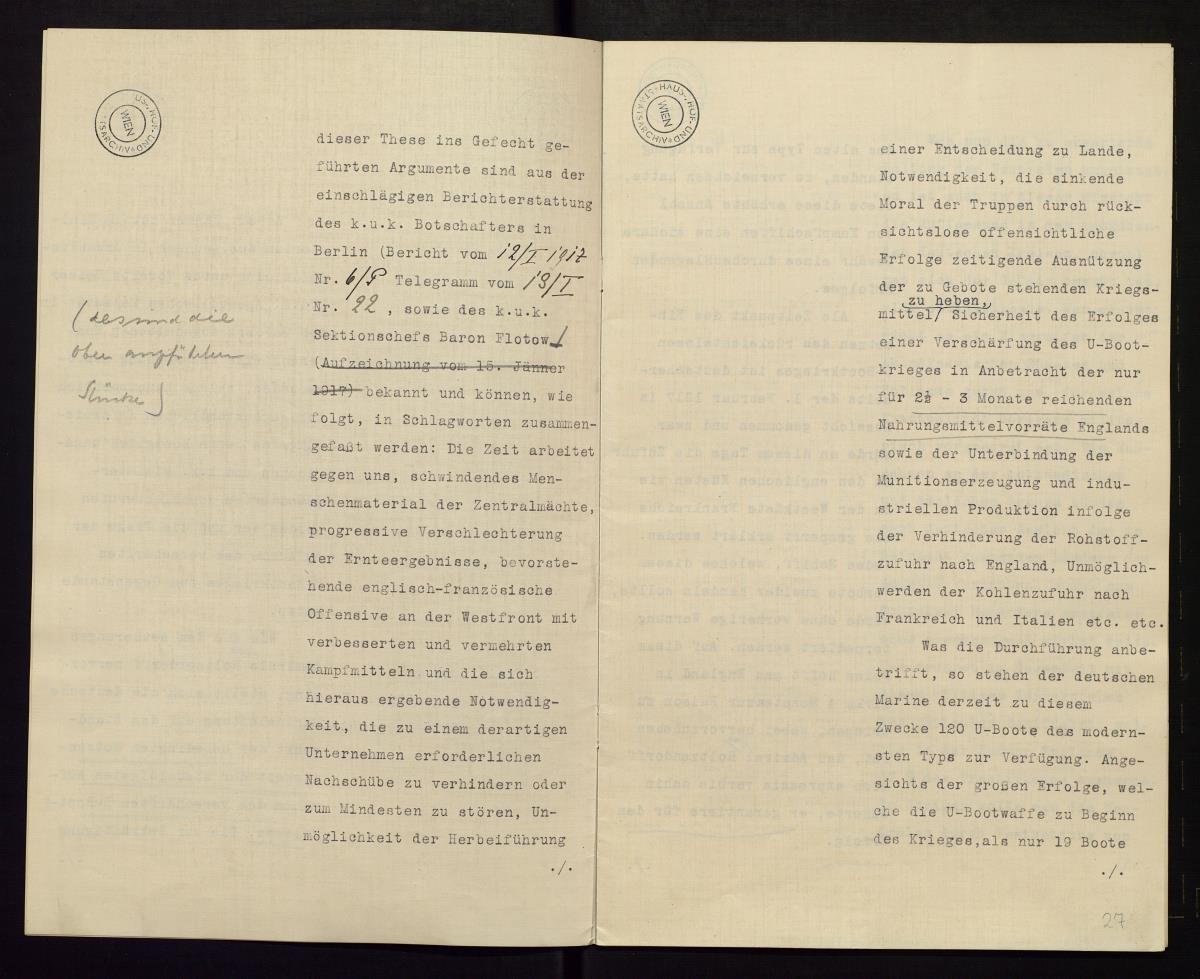 HAUS-, HOF- UND STAATSARCHIV WIEN
dieser These ins Gefecht ge-
führten Argumente sind aus der
einschlägigen Berichterstattung
des k.u.k. Botschafters in
Berlin (Bericht vom 12/I 1917
Nr. 6/P Telegramm vom 13/I
Nr. 22 , sowie des k.u.k.
Sektionschefs Baron Flotow
(Aufzeichnung vom 15. Jänner
1917) bekannt und können, wie
folgt, in Schlagworten zusammen-
gefaßt werden: Die Zeit arbeitet
gegen uns, schwindendes Men-
schenmaterial der Zentralmächte,
progressive Verschlechterung
der Ernteergebnisse, bevorste-
hende englisch-französische
Offensive an der Westfront mit
verbesserten und vermehrten
Kampfmitteln und die sich
hieraus ergebende Notwendig-
keit, die zu einem derartigen
Unternehmen erforderlichen
Nachschübe zu verhindern oder
zum Mindesten zu stören, Un-
möglichkeit der Herbeiführung
./.
(das sind die
oben angeführten
Stücke)
HAUS-, HOF- UND STAATSARCHIV WIEN
einer Entscheidung zu Lande,
Notwendigkeit, die sinkende
Moral der Truppen durch rück-
sichtslose offensichtliche
Erfolge zeitigende Ausnützung
der zu Gebote stehenden Kriegs-
zu heben,
mittel/ Sicherheit des Erfolges
einer Verschärfung des U-Boot-
krieges in Anbetracht der nur
für 2½ - 3 Monate reichenden
Nahrungsmittelvorräte Englands
sowie der Unterbindung der
Munitionserzeugung und indu-
striellen Produktion infolge
der Verhinderung der Rohstoff-
zufuhr nach England, Unmöglich-
werden der Kohlenzufuhr nach
Frankreich und Italien etc. etc.
Was die Durchführung anbe-
trifft, so stehen der deutschen
Marine derzeit zu diesem
Zwecke 120 U-Boote des modern-
sten Typs zur Verfügung. Ange-
sichts der großen Erfolge, wel-
che die U-Bootwaffe zu Beginn
des Krieges,als nur 19 Boote
./.
27